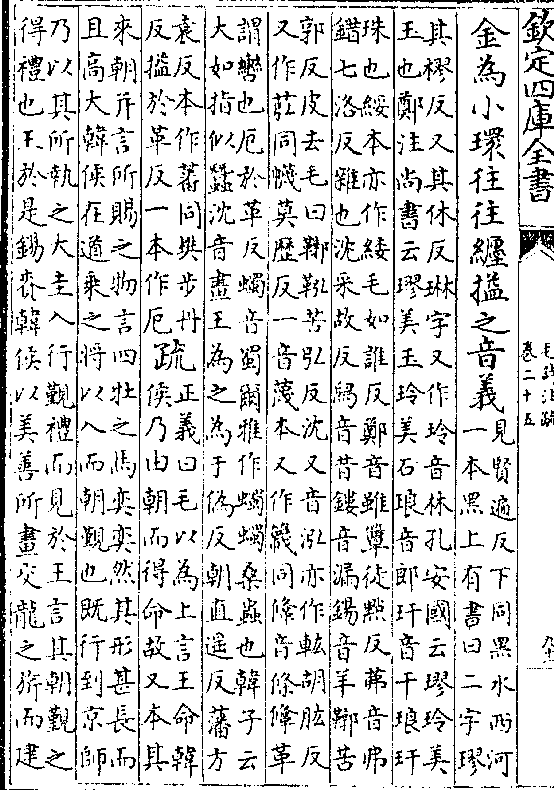 欽定四庫全書
毛詩注疏
卷二十五
金為小環往往纏搤之音義見賢遍反下同黑水西河
一本黑上有書曰二字璆
其樛反又其休反琳字又作玲音林孔安國云璆玲美
玉也鄭注尚書云璆美玉玲美石琅音郎玕音干琅玕
珠也綏本亦作緌毛如誰反鄭音雖簟徒點反茀音弗
錯七洛反雜也沈采故反舄音昔鏤音漏鍚音羊鞹苦
郭反皮去毛曰鞹鞃苦弘反沈又音泓亦作䡌胡肱反
又作同幭莫歴反一音蔑本又作簚同鞗音條鞗革
謂轡也厄於革反蠋音蜀爾雅作蠋蠋桑蟲也韓子云
大如指似蠶沈音畫王為之為于偽反朝直遥反藩方
袁反本作蕃同樊步丹
反搤於革反一本作厄疏正義曰毛以為上言王命韓
侯乃由朝而得命故又本其
來朝并言所賜之物言四牡之馬奕奕然其形甚長而
且高大韓侯在道乗之將以入而朝覲也既行到京師
乃以其所執之大圭入行覲禮而見於王言其朝覲之
得禮也王於是錫賚韓侯以美善所畫交龍之旂而建